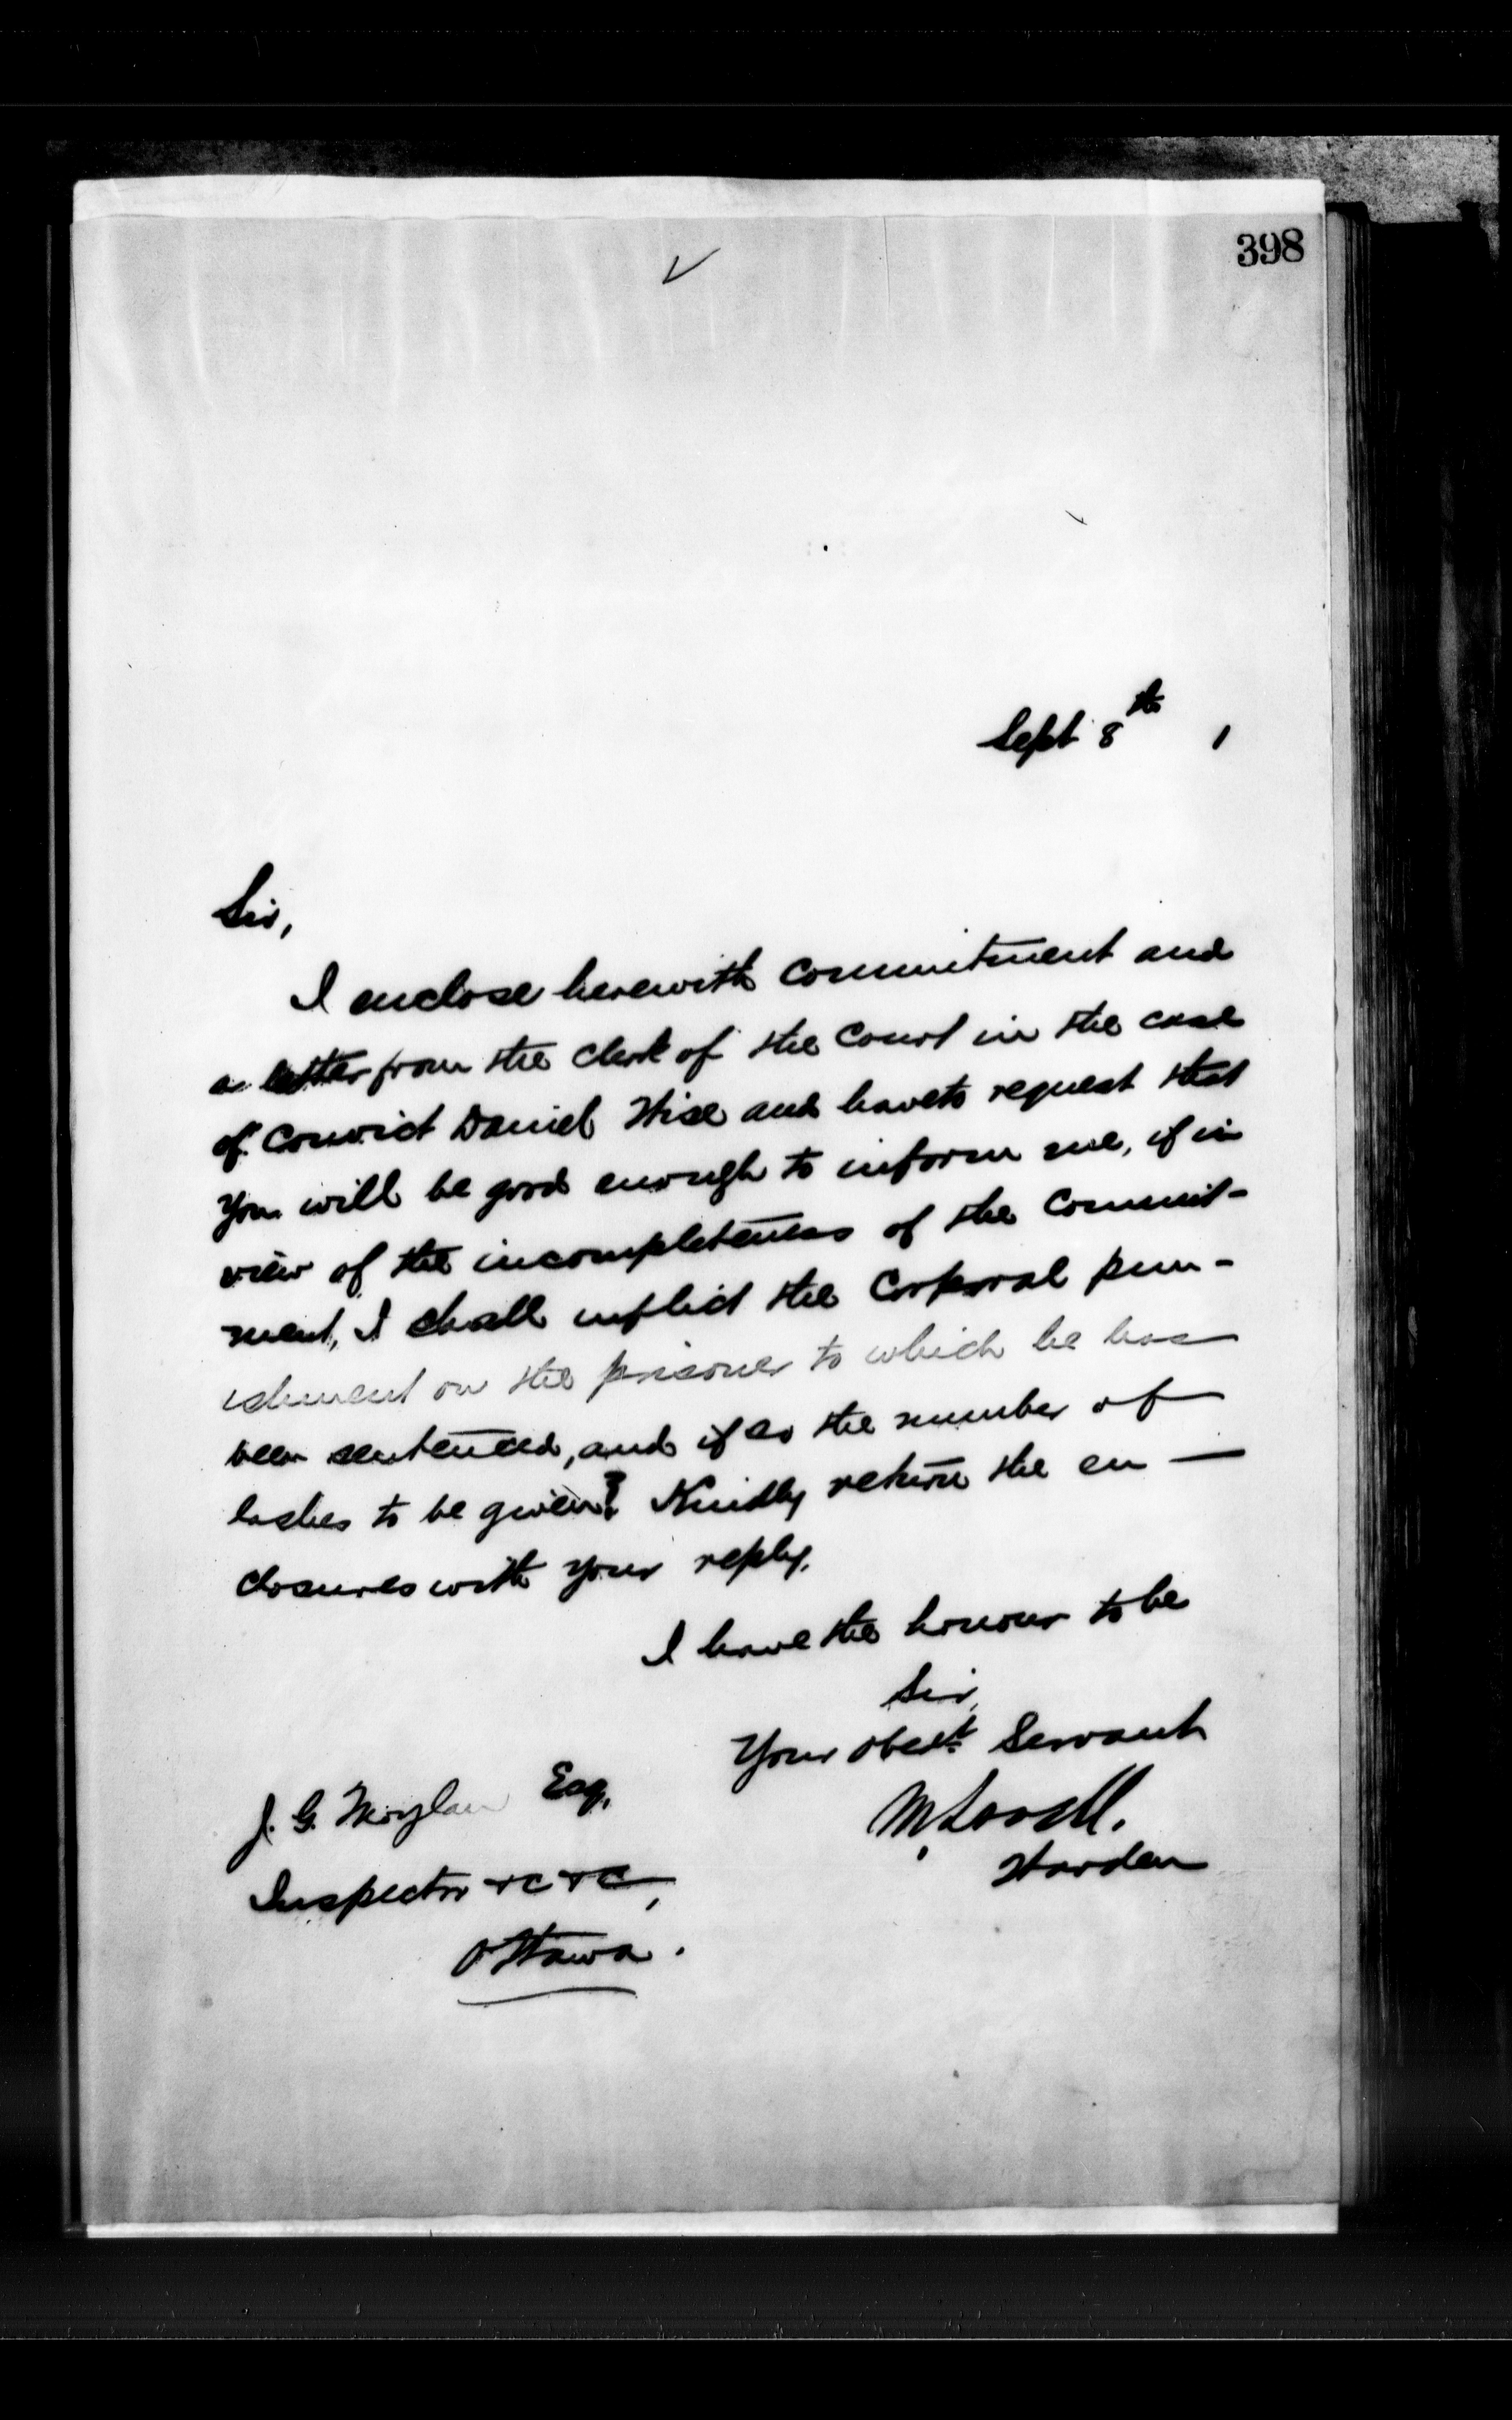 398
Sept 8th 1
Sir,
I enclose herewith Commitment and
a letter from the Clerk of the Court in the case
of Convict Daniel Wise and have to request that
you will be good enough to inform me, if in
view of the incompleteness of the Commit-
ment, I shall inflict the Corporal pun-
ishment on the prisoner to which he has
been sentenced, and if so the number of
lashes to be given? Kindly return the en-
closures with your reply.
I have the honour to be
Sir,
Your obedt. Servant
Warden
J. G. Moylan Esq,
Inspector &c &c,
Ottawa.